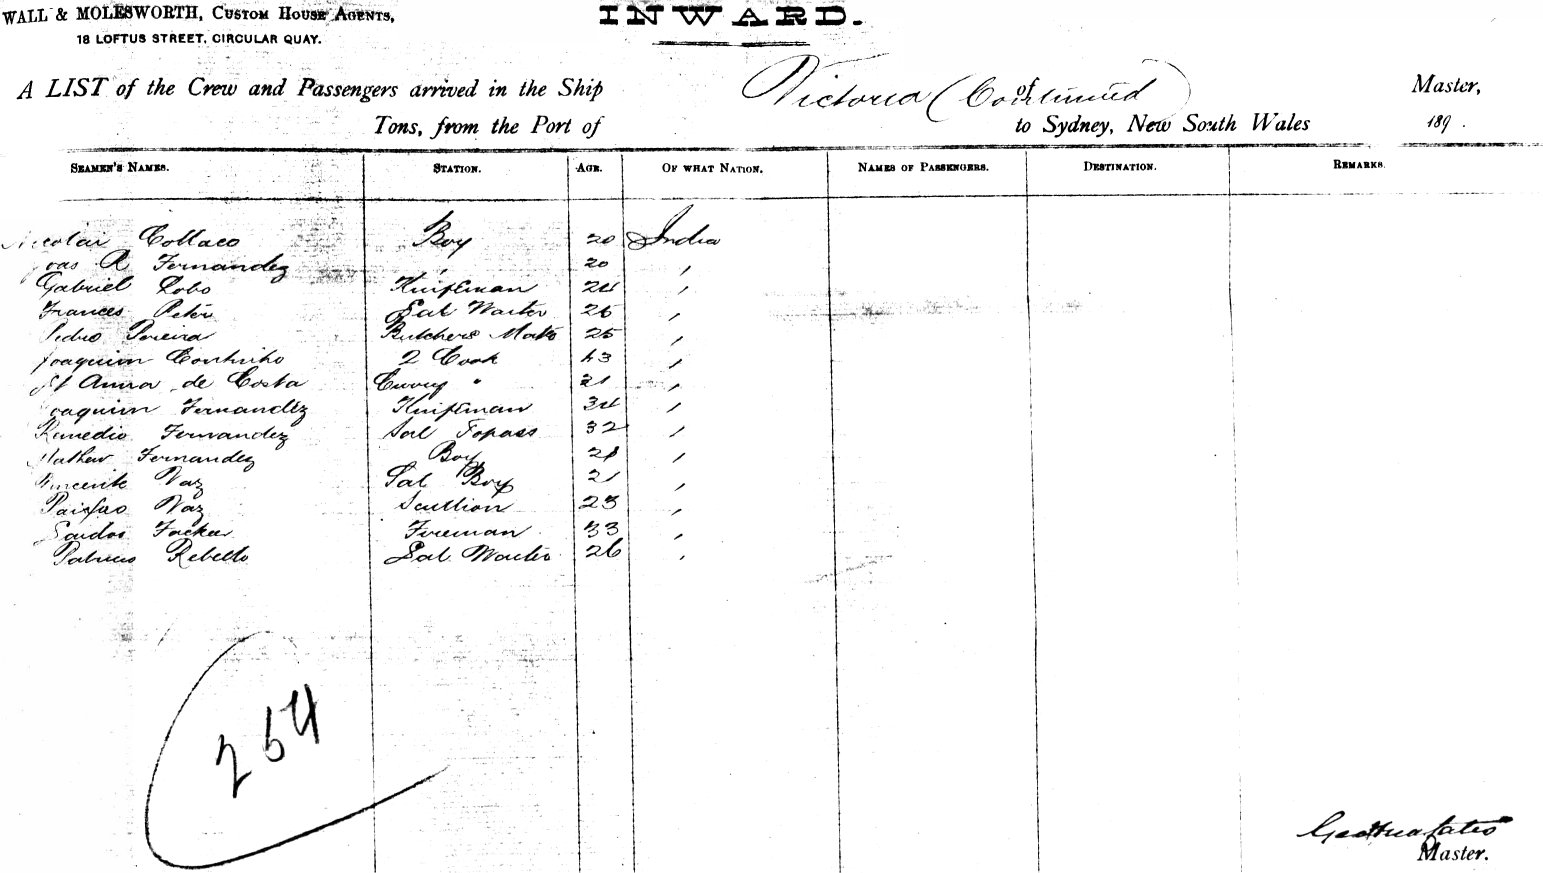 WALL & MOLESWORTH, CUSTOM HOUSE AGENTS,
18 LOFTUS STREET, CIRCULAR QUAY.
INWARD.
A LIST of the Crew and Passengers arrived in the Ship Victoria (Continued) of Master,
Tons, from the Port of to Sydney, New South Wales 189 .
SEAMEN'S NAMES. STATION. AGE. OF WHAT NATION. NAMES OF PASSENGERS. DESTINATION. REMARKS.
Nicolai Collaco Boy 20 India
R Fernandez " 20 "
Gabriel Lobo Knifeman 24 "
Frances Peter Sal Waiter 26 "
Pedro Pereira Butchers Mate 25 "
Joaquim Coutinho 2 Cook 43 "
St Anna de Costa Curry " 21 "
Joaquim Fernandez Knifeman 34 "
Remedio Fernandez Sal Topass 32 "
Mathew Fernandez Boy 21 "
Vaz Sal Boy 21 "
Vaz Scullion 23 "
Fireman 33 "
Rebello Sal Waiter 26 "
264
Master.